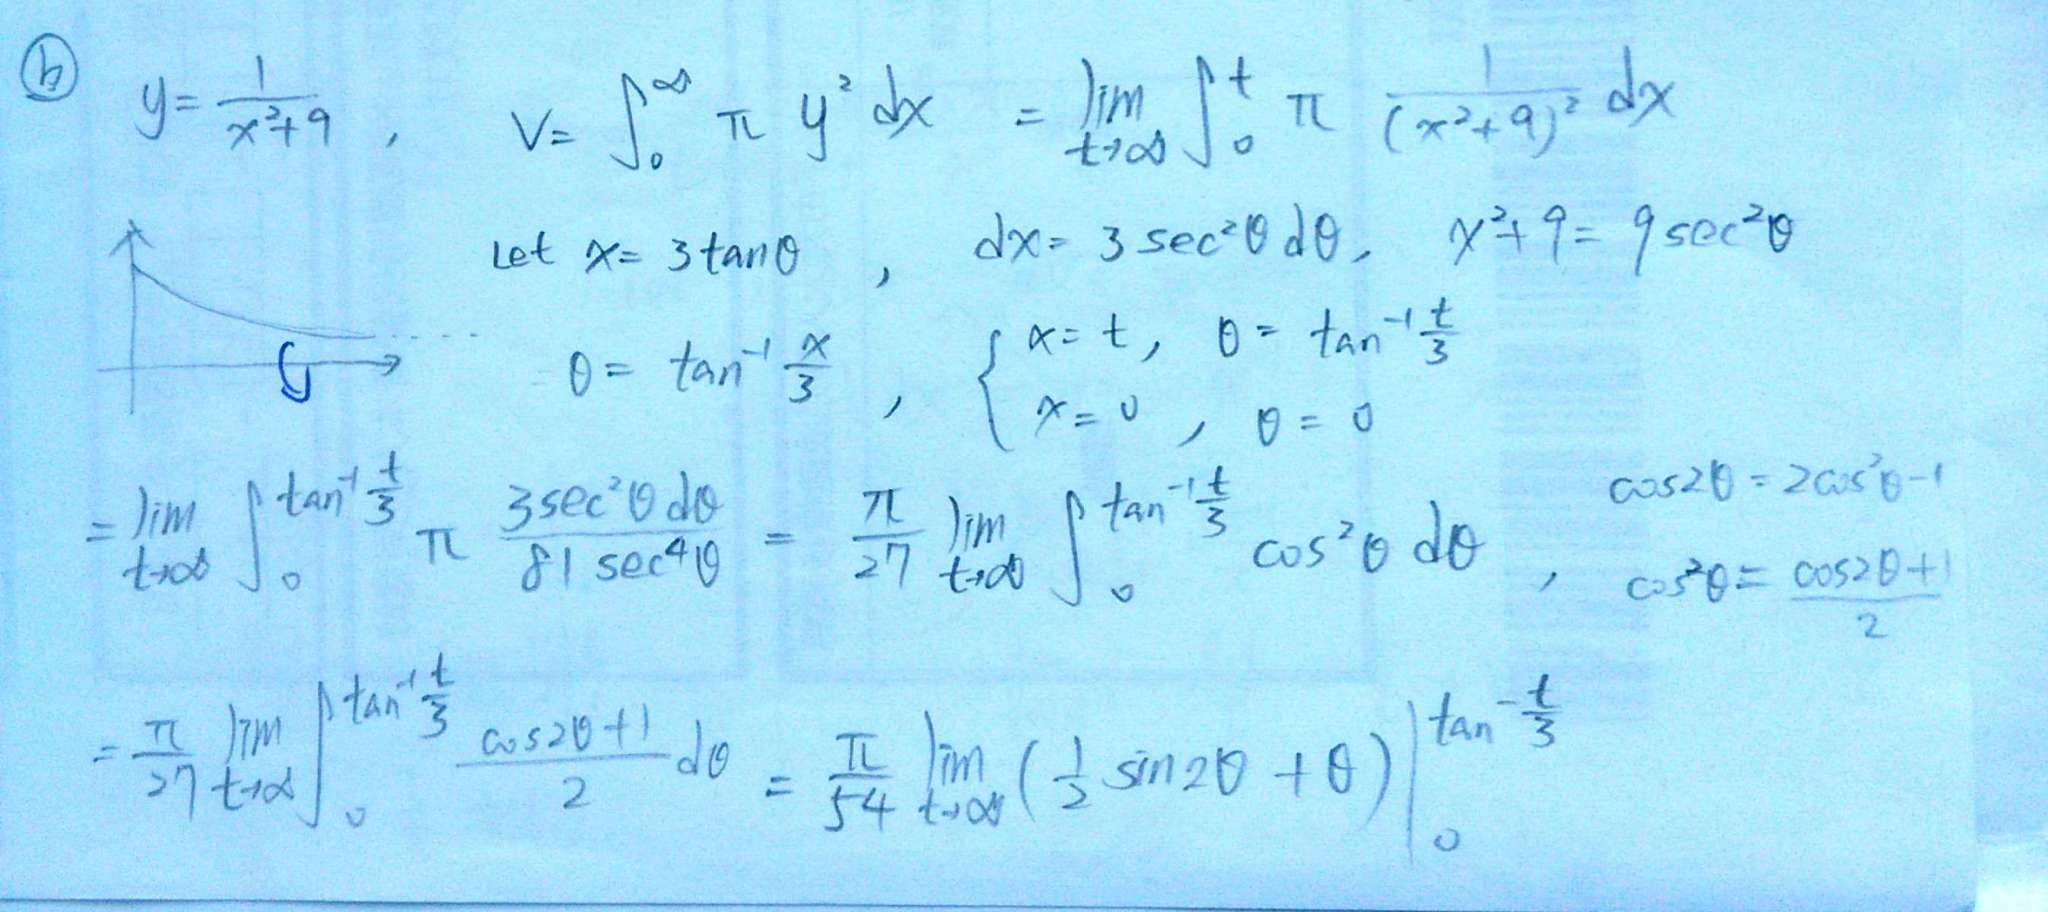 (b) y = 1/(x²+9) , V = ∫₀^∞ π y² dx = lim_{t→∞} ∫₀^t π 1/(x²+9)² dx
Let x = 3 tanθ , dx = 3 sec²θ dθ, x²+9 = 9 sec²θ
θ = tan⁻¹ x/3 , { x = t, θ = tan⁻¹ t/3
x = 0 , θ = 0
= lim_{t→∞} ∫₀^{tan⁻¹ t/3} π 3sec²θ dθ / 81 sec⁴θ = π/27 lim_{t→∞} ∫₀^{tan⁻¹ t/3} cos²θ dθ , cos2θ = 2cos²θ-1
cos²θ = (cos2θ+1)/2
= π/27 lim_{t→∞} ∫₀^{tan⁻¹ t/3} (cos2θ+1)/2 dθ = π/54 lim_{t→∞} ( 1/2 sin2θ + θ ) |₀^{tan⁻ t/3}